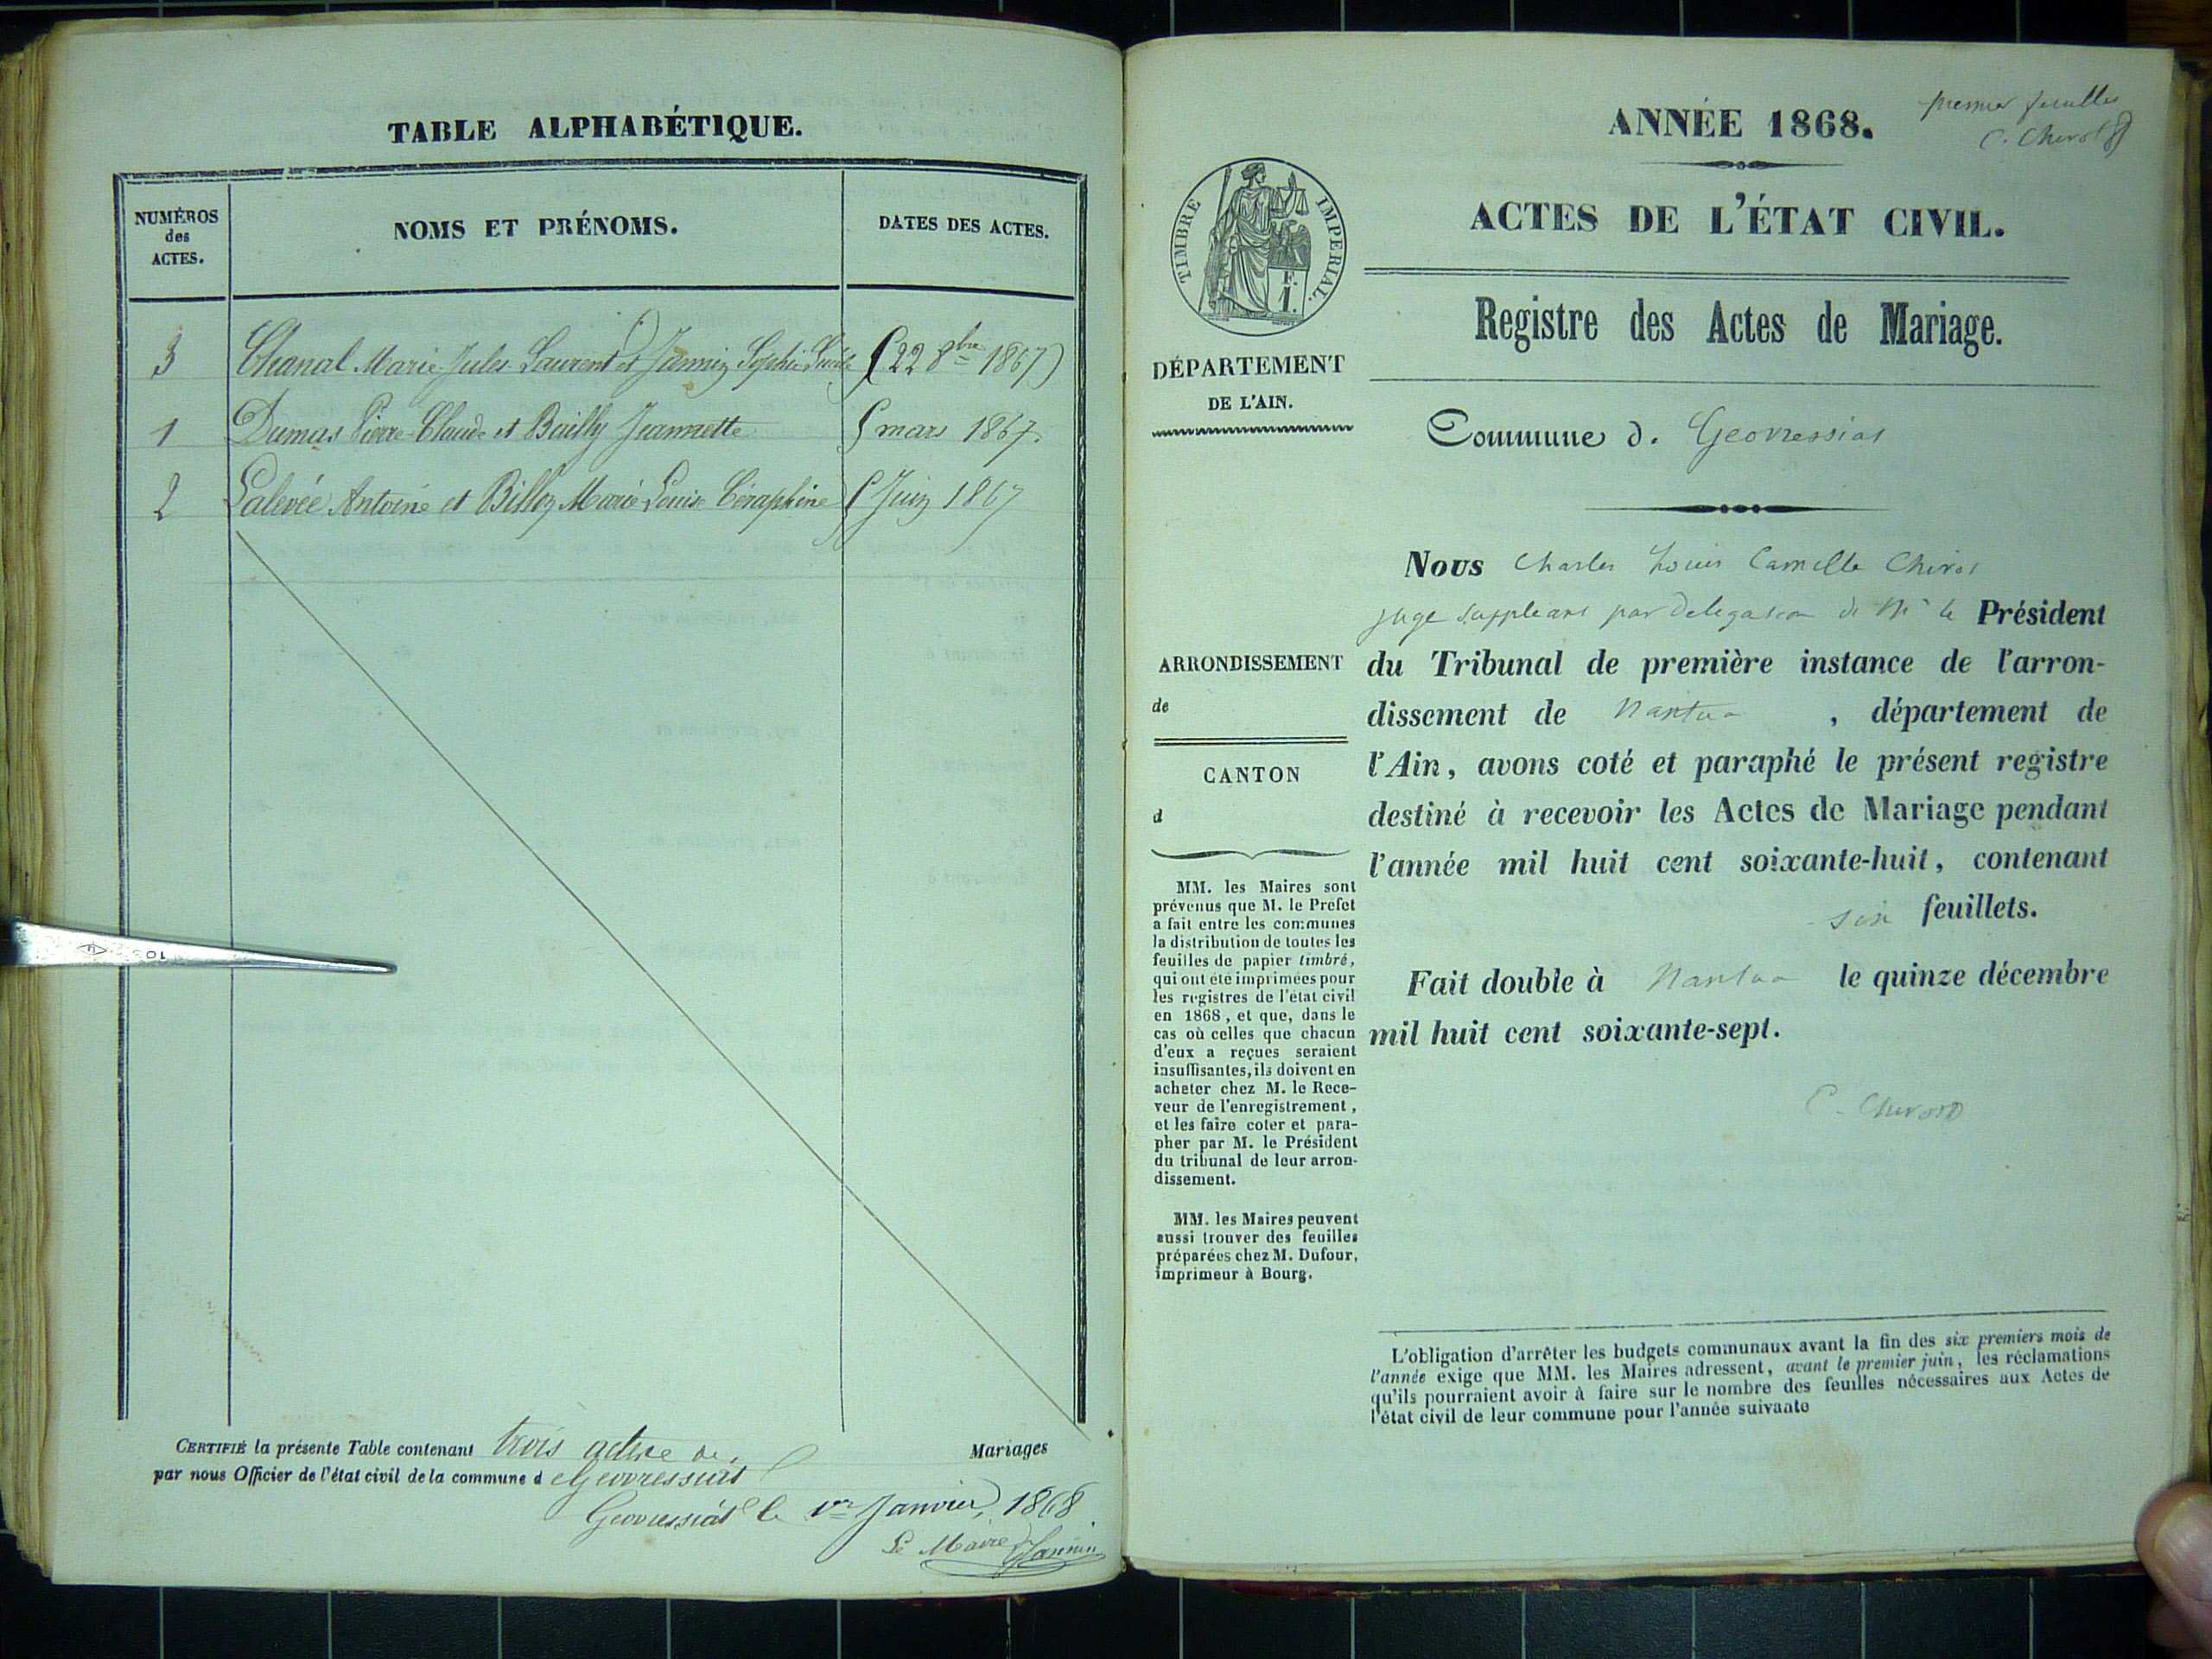 TABLE ALPHABÉTIQUE.
NUMÉROS
des
ACTES.
NOMS ET PRÉNOMS.
DATES DES ACTES.
3 Chanal Marie Jules Laurent et Jannin Sophie (22 8bre 1867)
1 Dumas Pierre Claude et Bailly Jeannette 5 mars 1867.
2 Lalevée Antoine et Billoy Marie Louise Céraphine Juin 1867
CERTIFIÉ la présente Table contenant trois actes de Mariages
par nous Officier de l'état civil de la commune d Geovressiat
Geovressiat le 1er Janvier 1868
Le Maire Jannin
ANNÉE 1868.
premier feuillet
C. Chirot
ACTES DE L'ÉTAT CIVIL.
TIMBRE IMPERIAL.
F.
1.
Registre des Actes de Mariage.
DÉPARTEMENT
DE L'AIN.
Commune d. Geovressiat
Nous Charles Louis Camille Chirot
juge suppleant par delegation de Mr le Président
du Tribunal de première instance de l'arron-
dissement de Nantua , département de
l'Ain, avons coté et paraphé le présent registre
destiné à recevoir les Actes de Mariage pendant
l'année mil huit cent soixante-huit, contenant
six feuillets.
Fait double à Nantua le quinze décembre
mil huit cent soixante-sept.
C. Chirot
ARRONDISSEMENT
de
CANTON
d
MM. les Maires sont
prévenus que M. le Prefet
a fait entre les communes
la distribution de toutes les
feuilles de papier timbré,
qui ont été imprimées pour
les registres de l'état civil
en 1868, et que, dans le
cas où celles que chacun
d'eux a reçues seraient
insuffisantes, ils doivent en
acheter chez M. le Rece-
veur de l'enregistrement,
et les faire coter et para-
pher par M. le Président
du tribunal de leur arron-
dissement.
MM. les Maires peuvent
aussi trouver des feuilles
préparées chez M. Dufour,
imprimeur à Bourg.
L'obligation d'arrêter les budgets communaux avant la fin des six premiers mois de
l'année exige que MM. les Maires adressent, avant le premier juin, les réclamations
qu'ils pourraient avoir à faire sur le nombre des feuilles nécessaires aux Actes de
l'état civil de leur commune pour l'année suivante